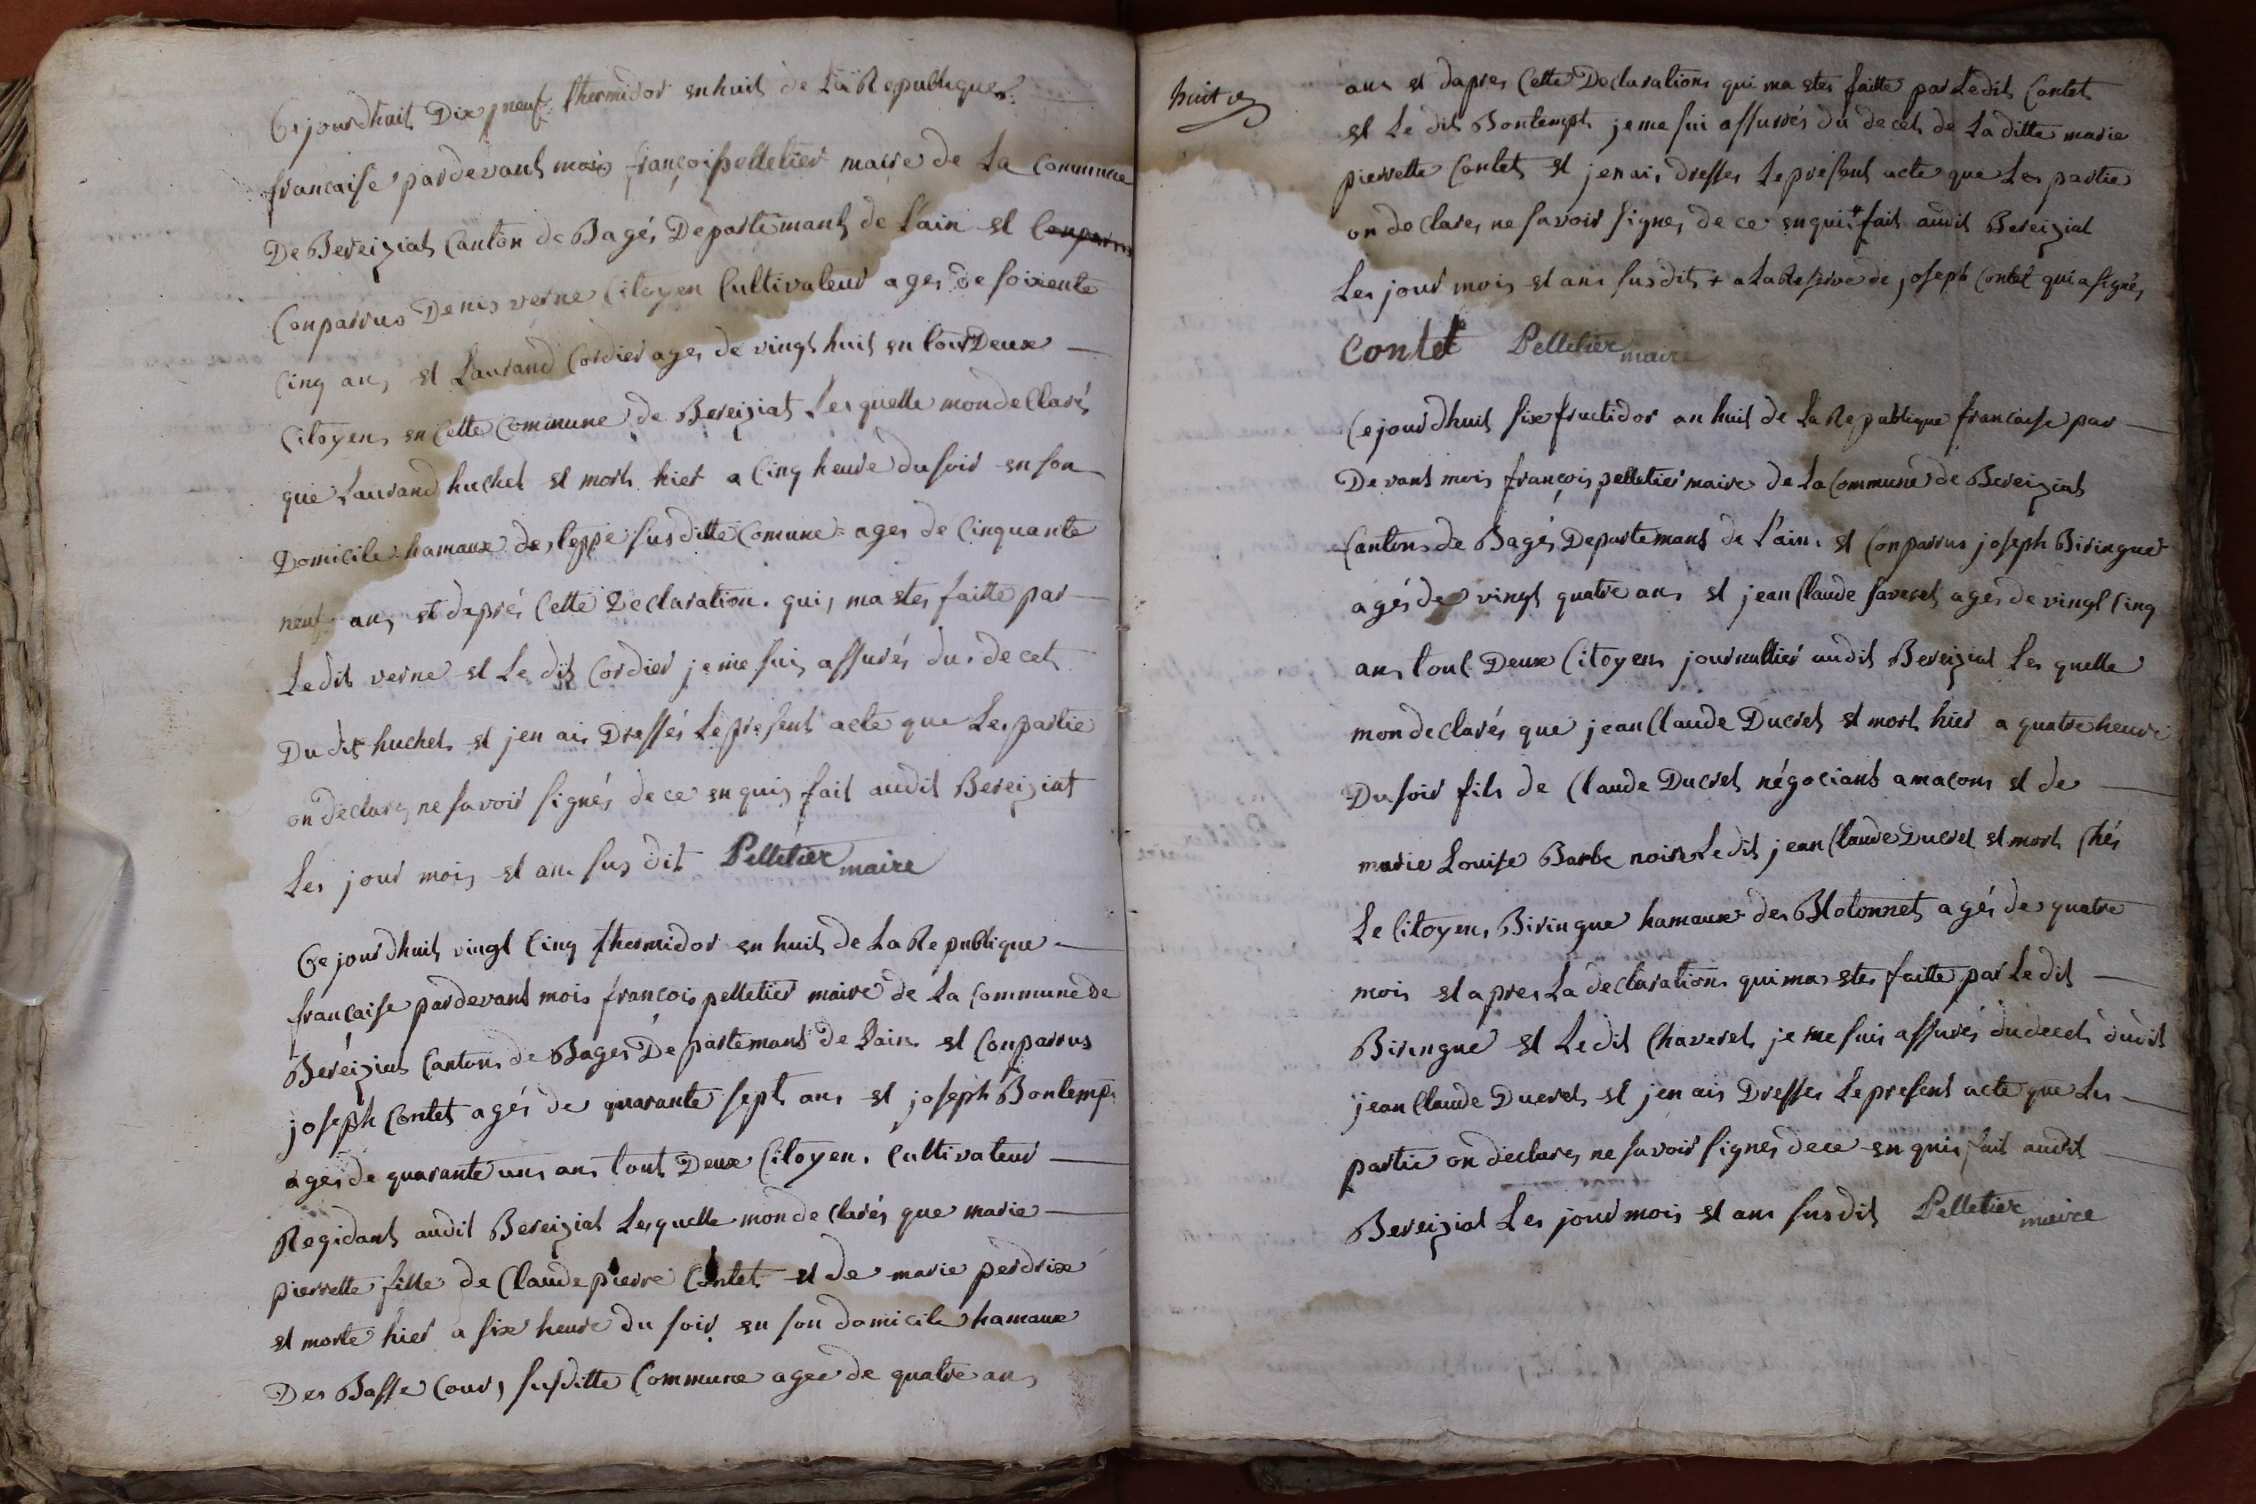 Ce jourdhuit Dix neuf thermidor en huit de La Republique
francaise pardevant mois françois pelletier maire de La commune
De Bereiziat Canton de Bagés Departemant de L'ain et Conparus
Conparrus Denis verne Citoyen Cultivateur ages de soixente
Cinq ans et Laurand Cordier ages de vingt huit en tout Deux
Citoyens en Cette Commune de Bereiziat Lesquelle mon de Clarés
que Laurand huchet et mort hier a Cinq heure du soir en son
Domicile hamaux des teppe susditte Comune ages de Cinquante
neuf ans et daprés Cette Declaration qui ma etes faitte par
Ledit verne et Le dit Cordier je me suis assurés du decet
Dudit huchet et jen ais Dressés Le present acte que Les partie
on declares ne savoir signés de ce en quis fait audit Bereiziat
Les jour mois et ans sus dit Pelletier maire
Ce jourdhuit vingt Cinq thermidor en huit de La Republique
francaise pardevant mois francois pelletier maire de La Commune de
Bereiziat Cantons de Bagés Departemant de Lain et Conparrus
joseph Contet agés de quarante sept ans et joseph Bontemps
agés de quarante uns ans tout Deux Citoyens Cultivateur
Regidant audit Bereiziat Lesquelle mon de Clarés que marie
pierrette fille de Claude pierre Contet et de marie perdrix
et morte hier a six heure du soir en son domicile hamaux
Des Basse Cour, susditte Commune agée de quatre ans
huit
ans et dapres Cette Declarations qui ma etes faitte par Ledit Contet
et Le dit Bontempt je me sui assurrés du decet de La ditte marie
pierrette Contet et jen ais dresses Le present acte que Les partie
on de Clares ne savoir signes de ce en qui + fait audit Bereiziat
Les jour mois et ans susdit + a La Reserve de joseph Contet qui a signés
Contet Pelletier maire
Ce jourdhuit six fructidor an huit de La Republique francaise par
Devant mois françois pelletier maire de La Commune de Bereiziat
Cantons de Bagés Departemant de L'ain et Conparrus joseph Biringue
agés de vingt quatre ans et jean Claude saveret ages de vingt Cinq
ans tout Deux Citoyens journallier audit Bereiziat Les quelle
mon de Clarés que jean Claude Ducret et mort hier a quatre heure
Du soir fils de Claude Ducret négociant a macons et de
marie Louise Barbe noire Ledit jean Claude Ducret et mort Chés
Le Citoyens Biringue hamaux des Blotonnet agés de quatre
mois et apres La declarations qui ma etes faitte par Le dit
Biringue et Le dit Chaveret je me suis assurés du decet dudit
jean Claude Ducret et jen ais Dresses Le present acte que Les
partie on declares ne savoir signes de ce en quis fait audit
Bereiziat Les jour mois et ans susdit Pelletier maire